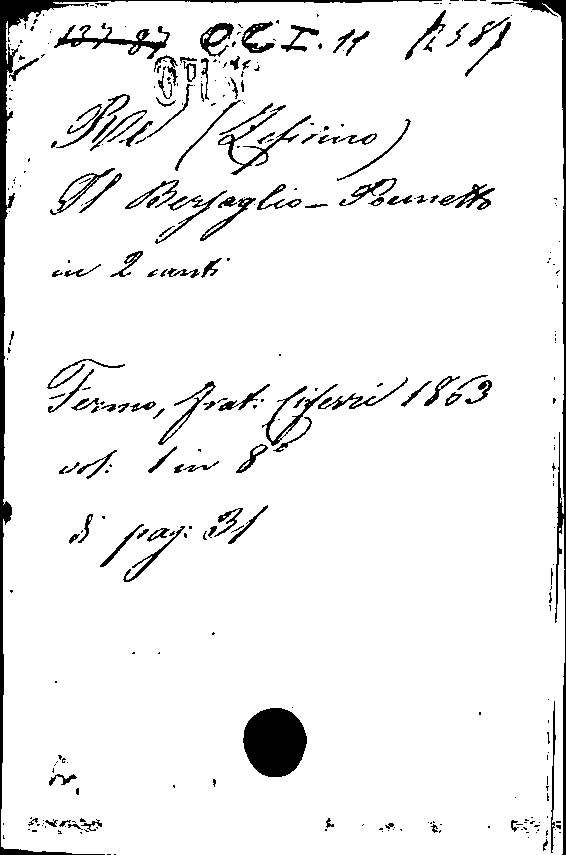 137-87 CCI. 11 12587
Re (Zefirino)
Il Bersaglio - Poemetto
in 2 canti
Fermo, frat: Ciferri 1863
vol: 1 in 8°
di pag: 31